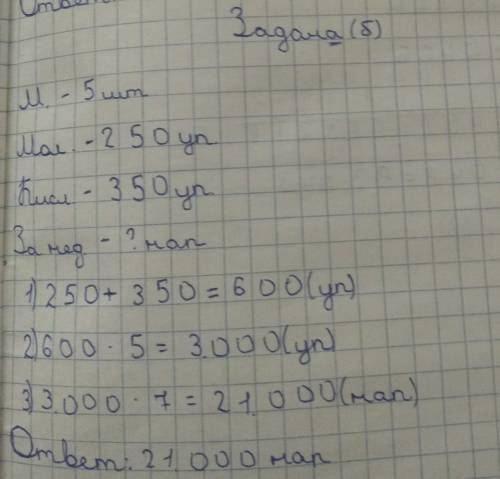 Ответ
Задача (б)
М. - 5 шт
Мол. - 250 уп
Кисл - 350 уп
За нед - ? нап
1) 250 + 350 = 600 (уп)
2) 600 · 5 = 3.000 (уп)
3) 3.000 · 7 = 21.000 (нап)
Ответ: 21 000 нап